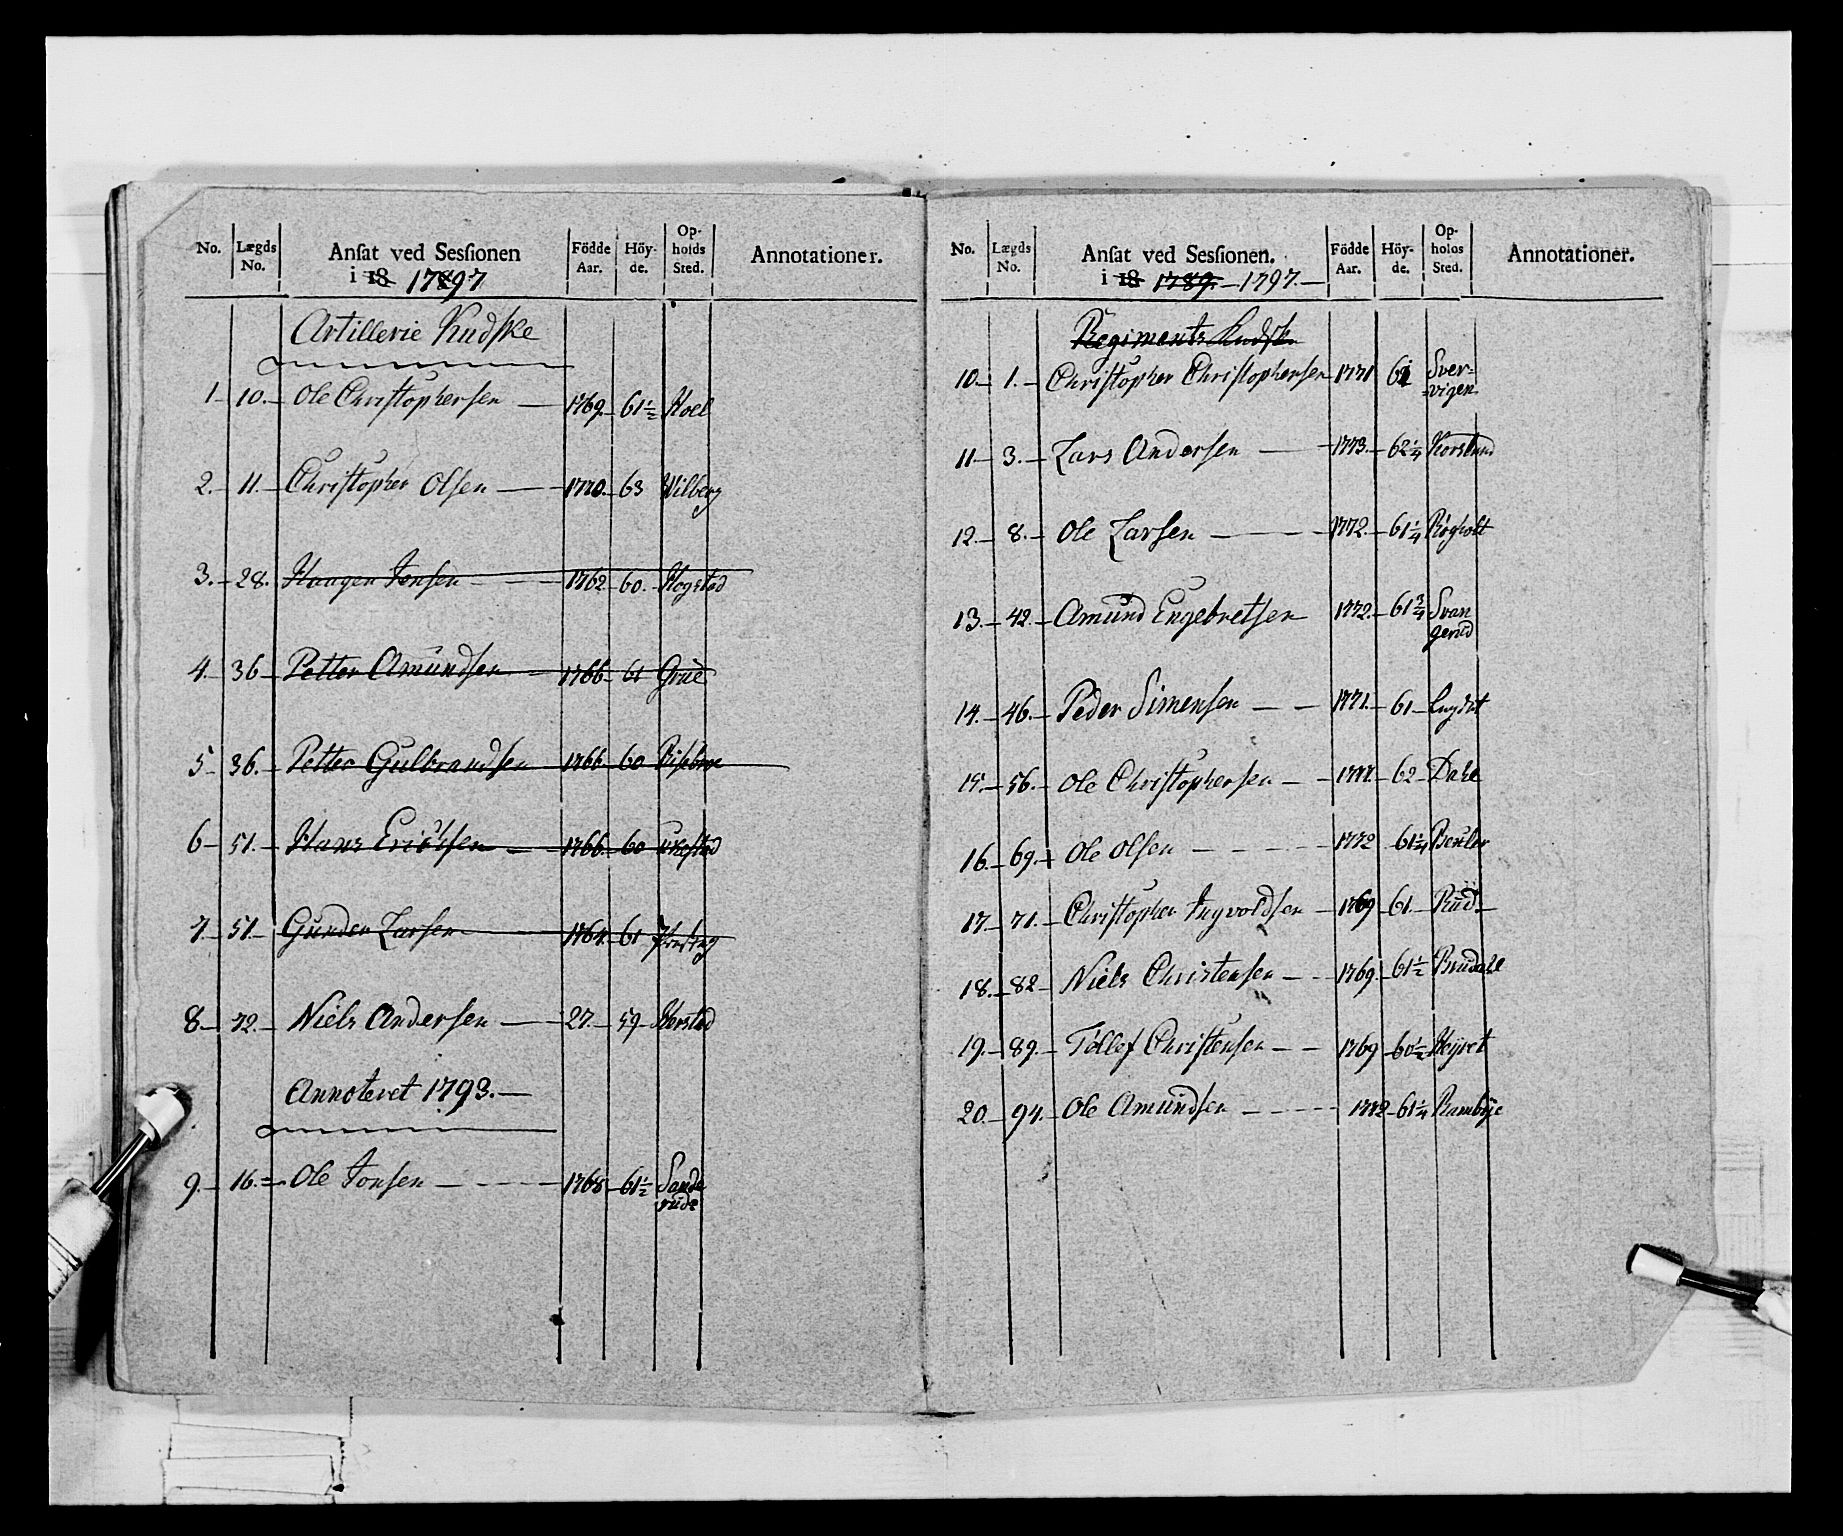 No. Lægds No. Ansat ved Sessionen i 18 1797 Födde Aar. Höy-de. Op-holds Sted. Annotationer.
Artillerie Kudske
1 10. Ole Christophersen 1769 61 1/2 Hoel
2. 11. Christopher Olsen 1770. 63 Wilberg
3. 28. Haagen Jonsen 1762 60. Hogstad
4. 36 Petter Amundsen 1766 61 Grüe
5 36. Petter Gulbrandsen 1766 60
6 51. Hans Ericksen 1766 60
7 51 Gunder Larsen 1764 61
8 72. Niels Andersen 27. 59
Annoteret 1793.
9. 16. Ole Jonsen 1768 61 1/2 Sande
rude
No. Lægds No. Ansat ved Sessionen. i 18 1789. 1797. Födde Aar. Höy-de. Op-holds Sted. Annotationer.
Regiments Kudsk
10. 1. Christopher Christophersen 1771 61 Sver-
vigen
11 3. Lars Andersen 1773. 62 1/4 Korslund
12. 8. Ole Larsen 1772. 61 1/4 Røgholt
13. 42. Amund Engebretsen 1772. 61 3/4 Svan
gerud
14. 46. Peder Simensen 1771. 61
15. 56. Ole Christophersen 62 Dahl
16. 69. Ole Olsen 1772 61 1/4
17. 71. Christopher Ingvoldsen 1769 61 Rud
18. 82 Niels Christensen 1769 61 1/2 Brudahl
19. 89. Tollef Christensen 1769 60 1/2
20. 94. Ole Amundsen 1772 61 1/4